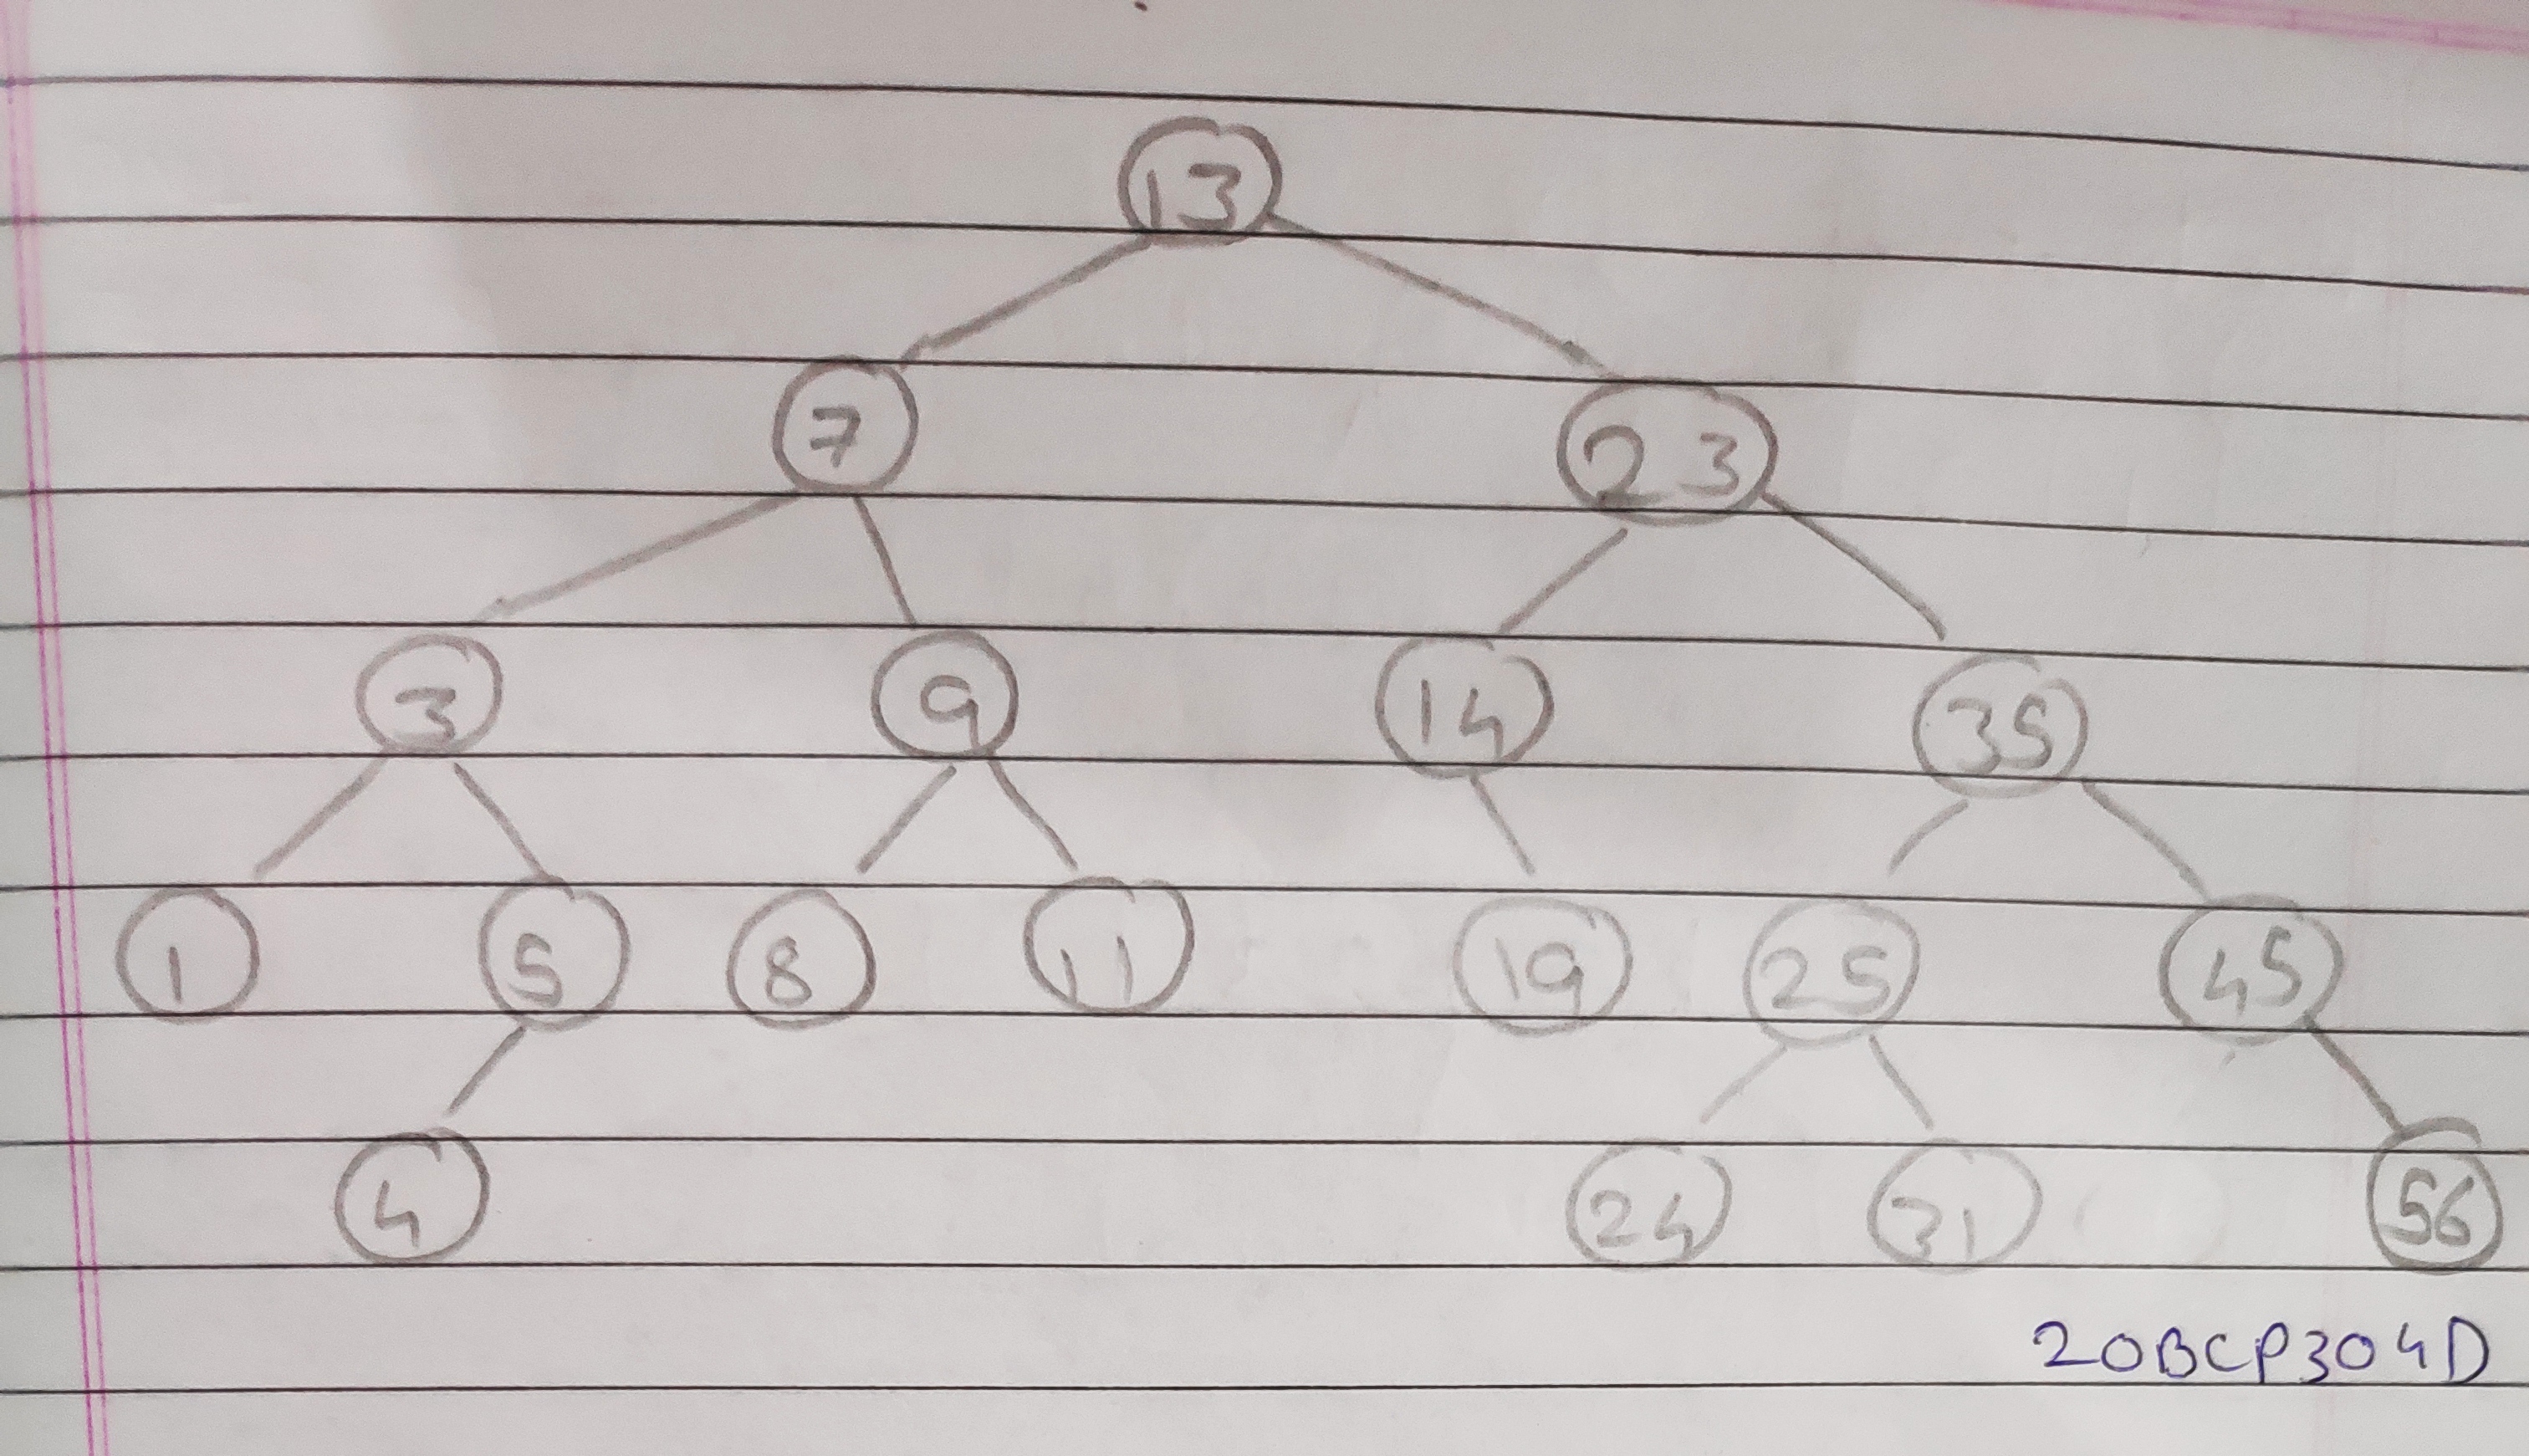 13
7 23
3 9 14 35
1 5 8 11 19 25 45
4 24 31 56
20BCP304D